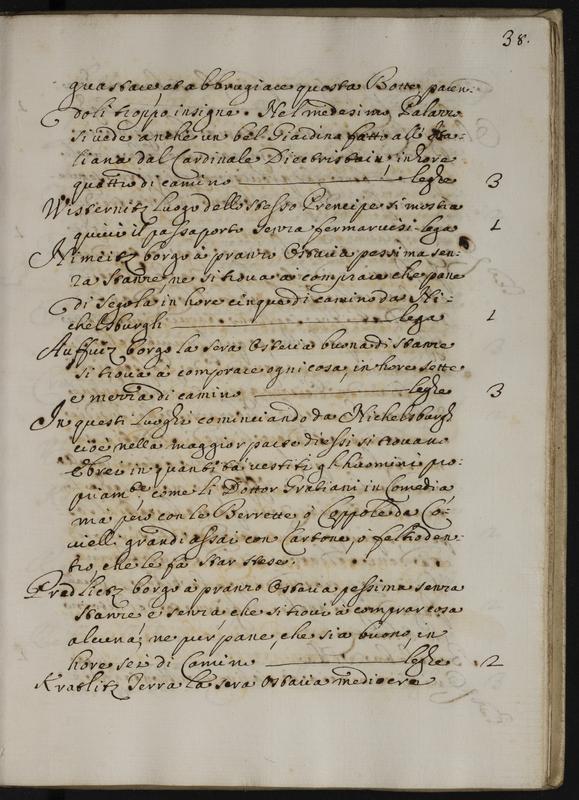 38.
guastare et abbrugiare questa Botte paren:
doli troppo insigne. Nel medesimo Palazzo
si vede anche un bel Giardino fatto all' Ita:
liana dal Cardinale Dicetristain in hore
quattro di camino leghe 3
Wisternitz luogo dello stesso Prencipe si mostra
quivi il passaporto senza fermarvisi lega 1
Nimcitz borgo à pranzo Ostaria pessima sen:
za stanze, ne si troua à comprare che pane
di segola in hore cinque di camino da Ni:
chelsburgh lega 1
Auspitz borgo la sera Ostaria buona di stanze
si troua à comprare ogni cosa, in hore sette
e mezza di camino leghe 3
In questi luoghi cominciando da Nichelsburgh
cioè nella maggior parte di essi si trouano
Ebrei in quantità vestiti gl'huomini pro:
priamte come li Dottor Gratiani in Comedia
mà però con le Berrette ò Coppole da Co:
vielli grandi assai con Cartone, o feltro den:
tro, che le fà star stese.
Pradlitz borgo à pranzo Ostaria pessima senza
stanze e senza che si troui à comprar cosa
alcuna; ne pur pane, che sia buono, in
hore sei di camino leghe 2
Kratlitz Terra la sera Ostaria mediocre